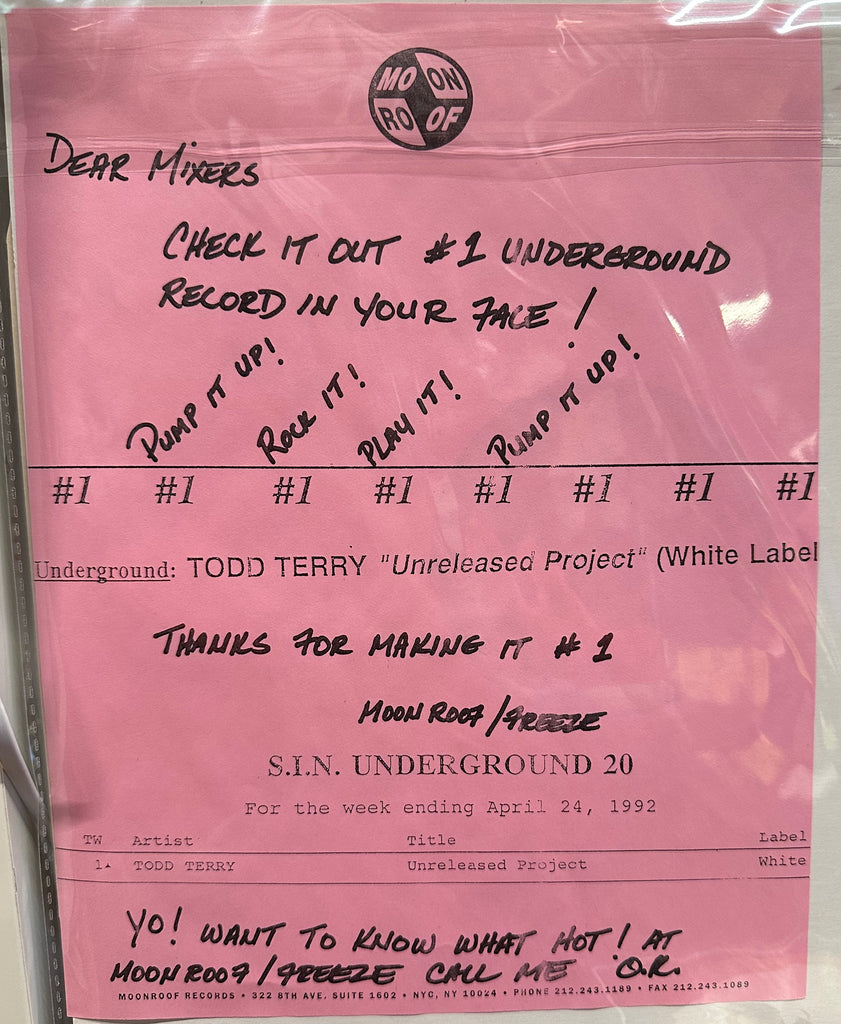 MO ON
RO OF
DEAR MIXERS
CHECK IT OUT #1 UNDERGROUND
RECORD IN YOUR FACE!
PUMP IT UP! ROCK IT! PLAY IT! PUMP IT UP!
#1 #1 #1 #1 #1 #1 #1 #1
Underground: TODD TERRY "Unreleased Project" (White Label
THANKS FOR MAKING IT #1
MOONROOF/FREEZE
S.I.N. UNDERGROUND 20
For the week ending April 24, 1992
TW Artist Title Label
1 TODD TERRY Unreleased Project White
YO! WANT TO KNOW WHAT HOT! AT
MOONROOF/FREEZE CALL ME O.R.
MOONROOF RECORDS • 322 8TH AVE, SUITE 1602 • NYC, NY 10024 • PHONE 212.243.1189 • FAX 212.243.1089